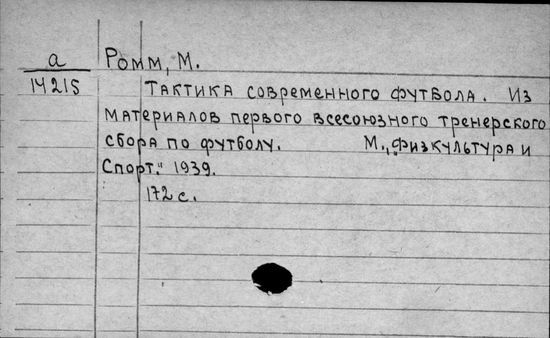 а Ромм, М.
14215 Тактика современного футбола. Из
материалов первого всесоюзного тренерского
сбора по футболу. М., „Физкультура и
Спорт." 1939.
172 с.